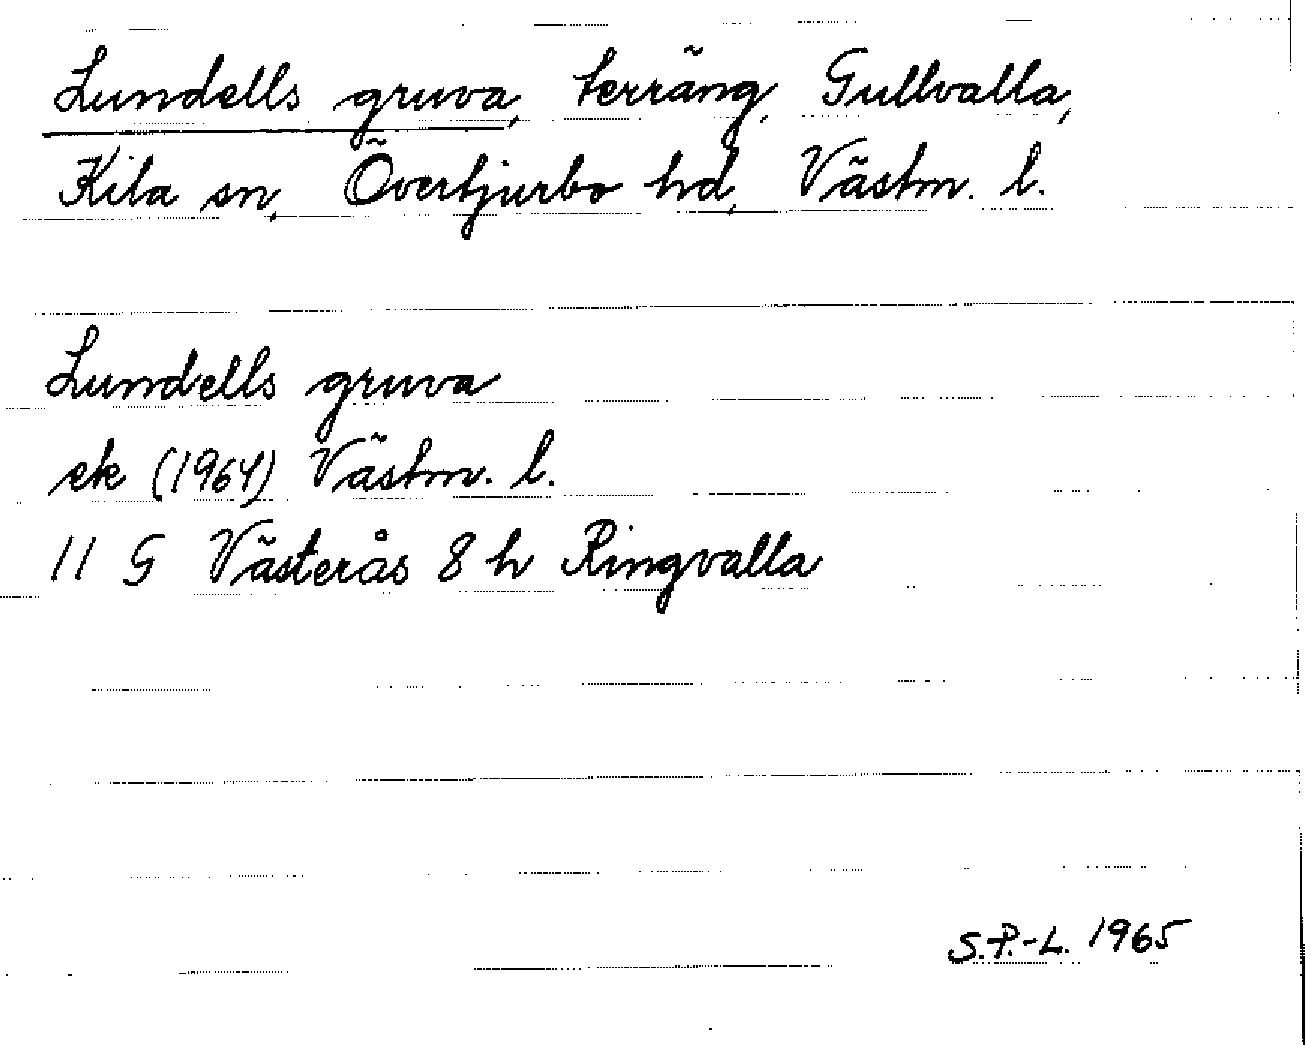 Lundells gruva, terräng, Gullvalla,
Kila sn, Övertjurbo hd, Västm. l.
Lundells gruva
ek (1964) Västm. l.
11 G Västerås 8 h Ringvalla
S.P.-L. 1965